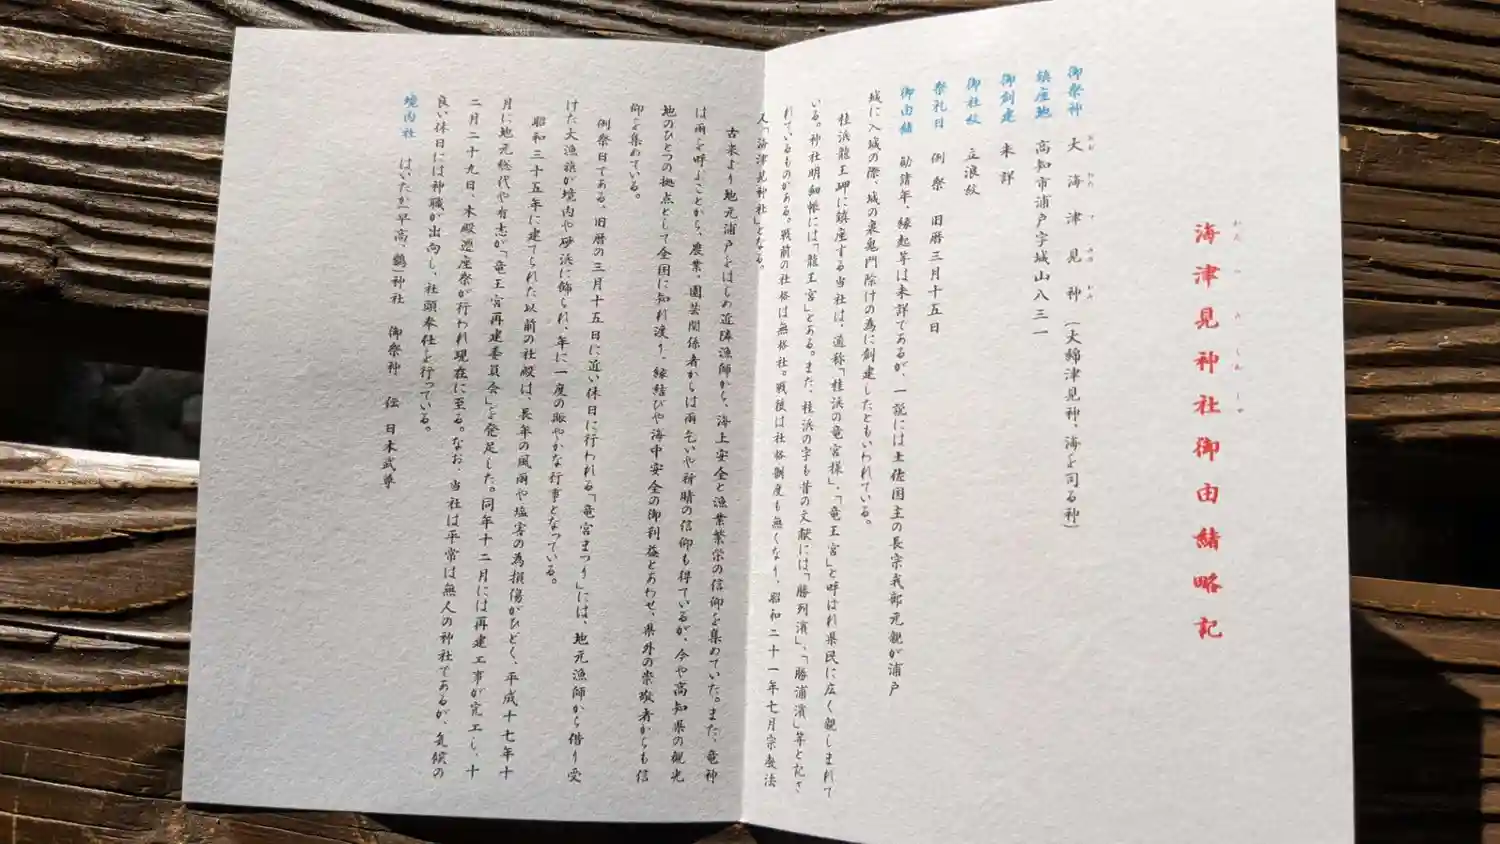 海津見神社御由緒略記
御祭神 大海津見神（大綿津見神、海を司る神）
鎮座地 高知市浦戸字城山八三一
御創建 未詳
御社紋 立浪紋
祭礼日 例祭 旧暦三月十五日
御由緒 勧請年、縁起等は未詳であるが、一説には土佐国主の長宗我部元親が浦戸
城に入城の際、城の裏鬼門除けの為に創建したともいわれている。
桂浜龍王岬に鎮座する当社は、通称「桂浜の竜宮様」、「竜王宮」と呼ばれ県民に広く親しまれて
いる。神社明細帳には「龍王宮」とある。また、桂浜の字も昔の文献には「勝列濱」、「勝浦濱」等と記さ
れているものがある。戦前の社格は無格社。戦後は社格制度も無くなり、昭和二十一年七月宗教法
人「海津見神社」となる。
古来より地元浦戸をはじめ近隣漁師から、海上安全と漁業繁栄の信仰を集めていた。また、竜神
は雨を呼ぶことから、農業、園芸関係者からは雨乞いや祈晴の信仰も得ているが、今や高知県の観光
地のひとつの拠点として全国に知れ渡り、縁結びや海中安全の御利益とあわせ、県外の崇敬者からも信
仰を集めている。
例祭日である、旧暦の三月十五日に近い休日に行われる「竜宮まつり」には、地元漁師から借り受
けた大漁旗が境内や砂浜に飾られ、年に一度の賑やかな行事となっている。
昭和三十五年に建てられた以前の社殿は、長年の風雨や塩害の為損傷がひどく、平成十七年十
月に地元総代や有志が「竜王宮再建委員会」を発足した。同年十二月には再建工事が完工し、十
二月二十九日、本殿遷座祭が行われ現在に至る。なお、当社は平常は無人の神社であるが、気候の
良い休日には神職が出向し、社頭奉仕を行っている。
境内社 はいたか「早高（鷂）」神社 御祭神 伝 日本武尊